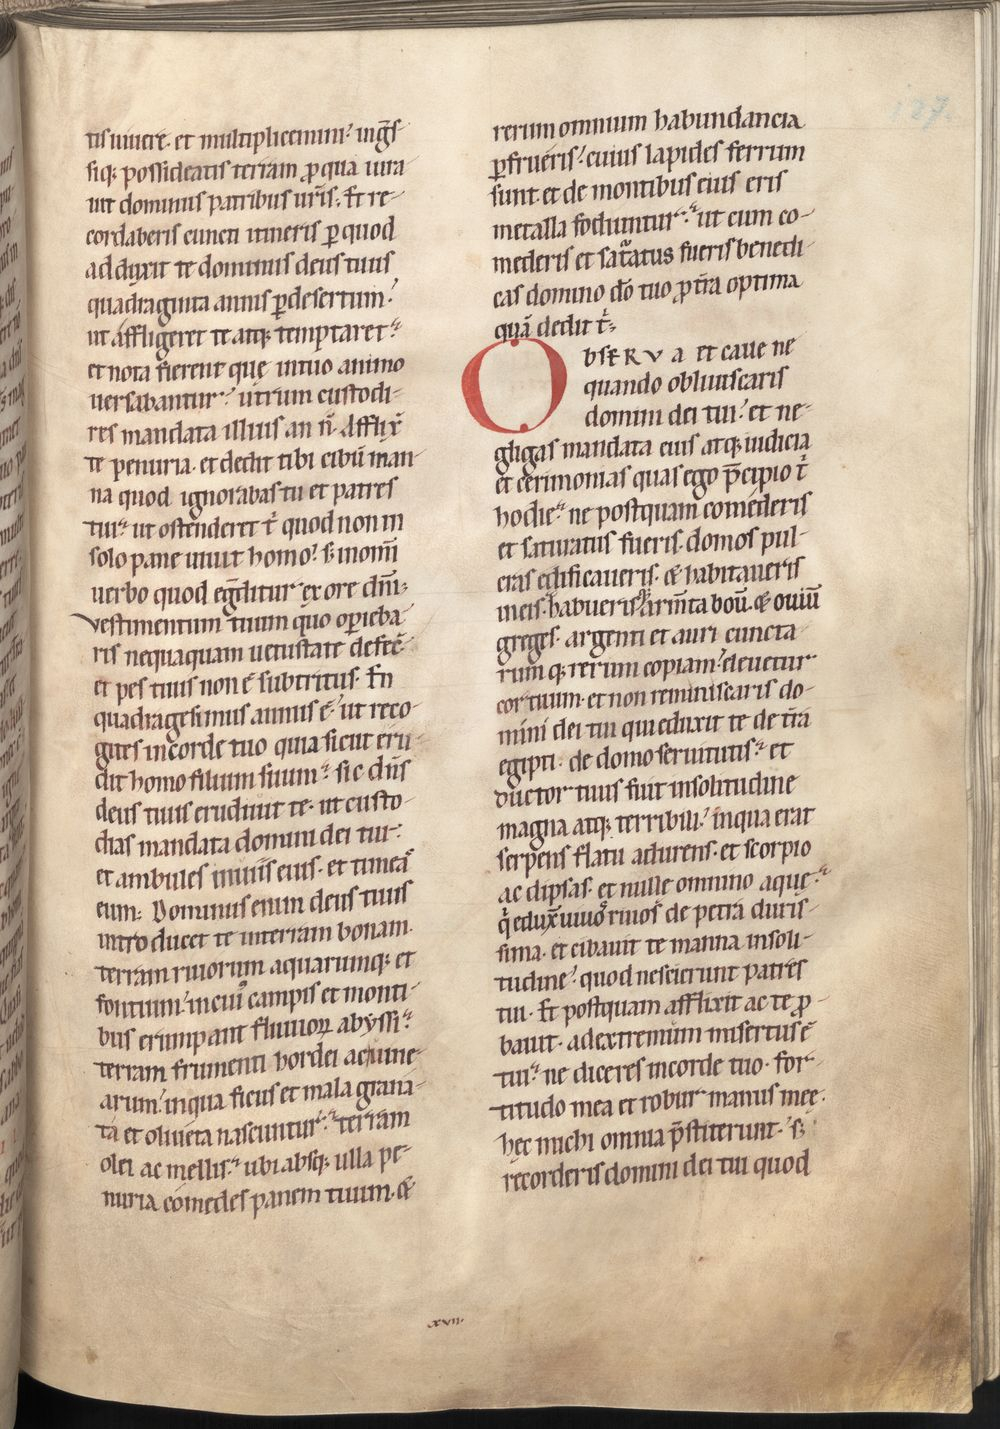 tis uiuere. et multiplicemini? ingr̄s
siq; possideatis terram ꝓ qua iura
uit dominus patribus ur̄is; Et re-
cordaberis cuncti itineris ꝑ quod
adduxit te dominus deus tuus
quadraginta annis ꝑ desertum?
ut affligeret te atq; temptaret?
et nota fierent quę in tuo animo
uersabantur? utrum custodi-
res mandata illius an n̄. Afflix̄
te penuria. et dedit tibi cibū man
na quod ignorabas tu et patres
tui? ut ostenderet t̄ quod non in
solo pane uiuit homo? s; in om̄i
uerbo quod egr̄ditur ex ore dn̄i;
Vestimentum tuum quo oꝑieba
ris nequaquam uetustate defec̄
et pes tuus non ē subtritus. En
quadragesimus annus ē? ut reco
gites in corde tuo quia sicut eru
dit homo filium suum? sic dn̄s
deus tuus erudiuit te. ut custo-
dias mandata domini dei tui?
et ambules in uiis eius. et timeas
eum; Dominus enim deus tuus
introducet te in terram bonam.
terram riuorum aquarumq; et
fontium? in cuiꝰ campis et monti-
bus erumpant fluuioꝝ abyssi?
terram frumenti hordei ac uine-
arum? in qua ficus et mala grana-
ta et oliueta nascuntur? terram
olei ac mellis? ubi absq; ulla pe-
nuria comedes panem tuum. &
rerum omnium habundancia
ꝑfrueris? cuius lapides ferrum
sunt et de montibus eius eris
metalla fodiuntur? ut cum co-
mederis et satiatus fueris benedi
cas domino dō tuo ꝓ tr̄a optima
quā dedit t̄;
OBSERVA et caue ne
quando obliuiscaris
domini dei tui? et ne-
gligas mandata eius atq; iudicia
et cerimonias quas ego p̄cipio t̄
hodie? ne postquam comederis
et satiatus fueris. domos pul-
cras edificaueris. & habitaueris
in eis. habuerisq; arm̄ta boū. & ouiū
greges. argenti et auri cuncta
rumq; rerum copiam? eleuetur
cor tuum. et non reminiscaris do-
mini dei tui qui eduxit te de tr̄a
egipti. de domo seruitutis? et
ductor tuus fuit in solitudine
magna atq; terribili? in qua erat
serpens flatu adurens. et scorpio
ac dipsas. et nullę omnino aquę?
q̄ edux̄ riuos de petra duris-
sima. et cibauit te manna in soli-
tudine? quod nescierunt patres
tui. Et postquam afflixit ac te ꝓ-
bauit. ad extremum misertus ē
tui? ne diceres in corde tuo. for-
titudo mea et robur manus mee.
hęc michi omnia p̄stiterunt. s;
recorderis domini dei tui quod
xvii.
127.